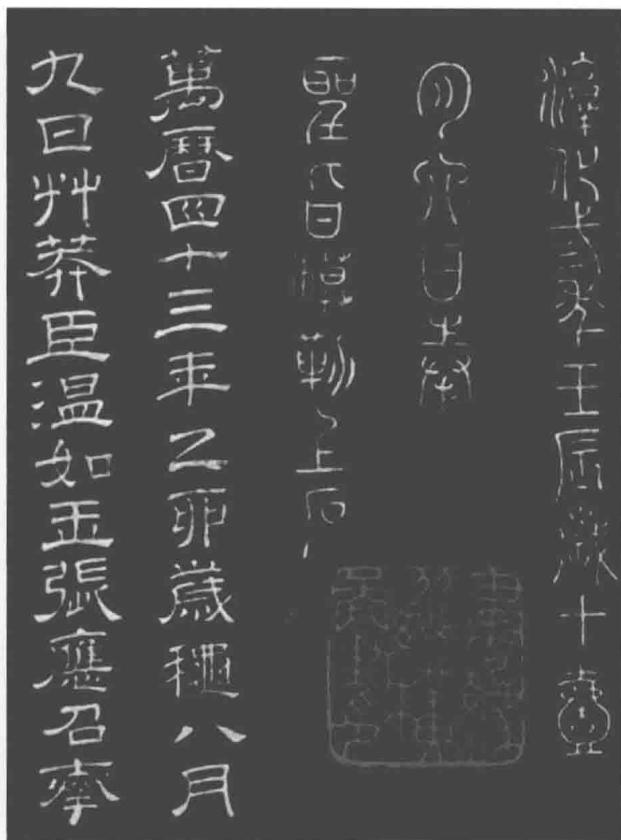 淳化叁年壬辰歲十壹
月六日奉
聖旨模勒上石
萬曆四十三年乙卯歲穐八月
九日艸莽臣溫如玉張應召奉